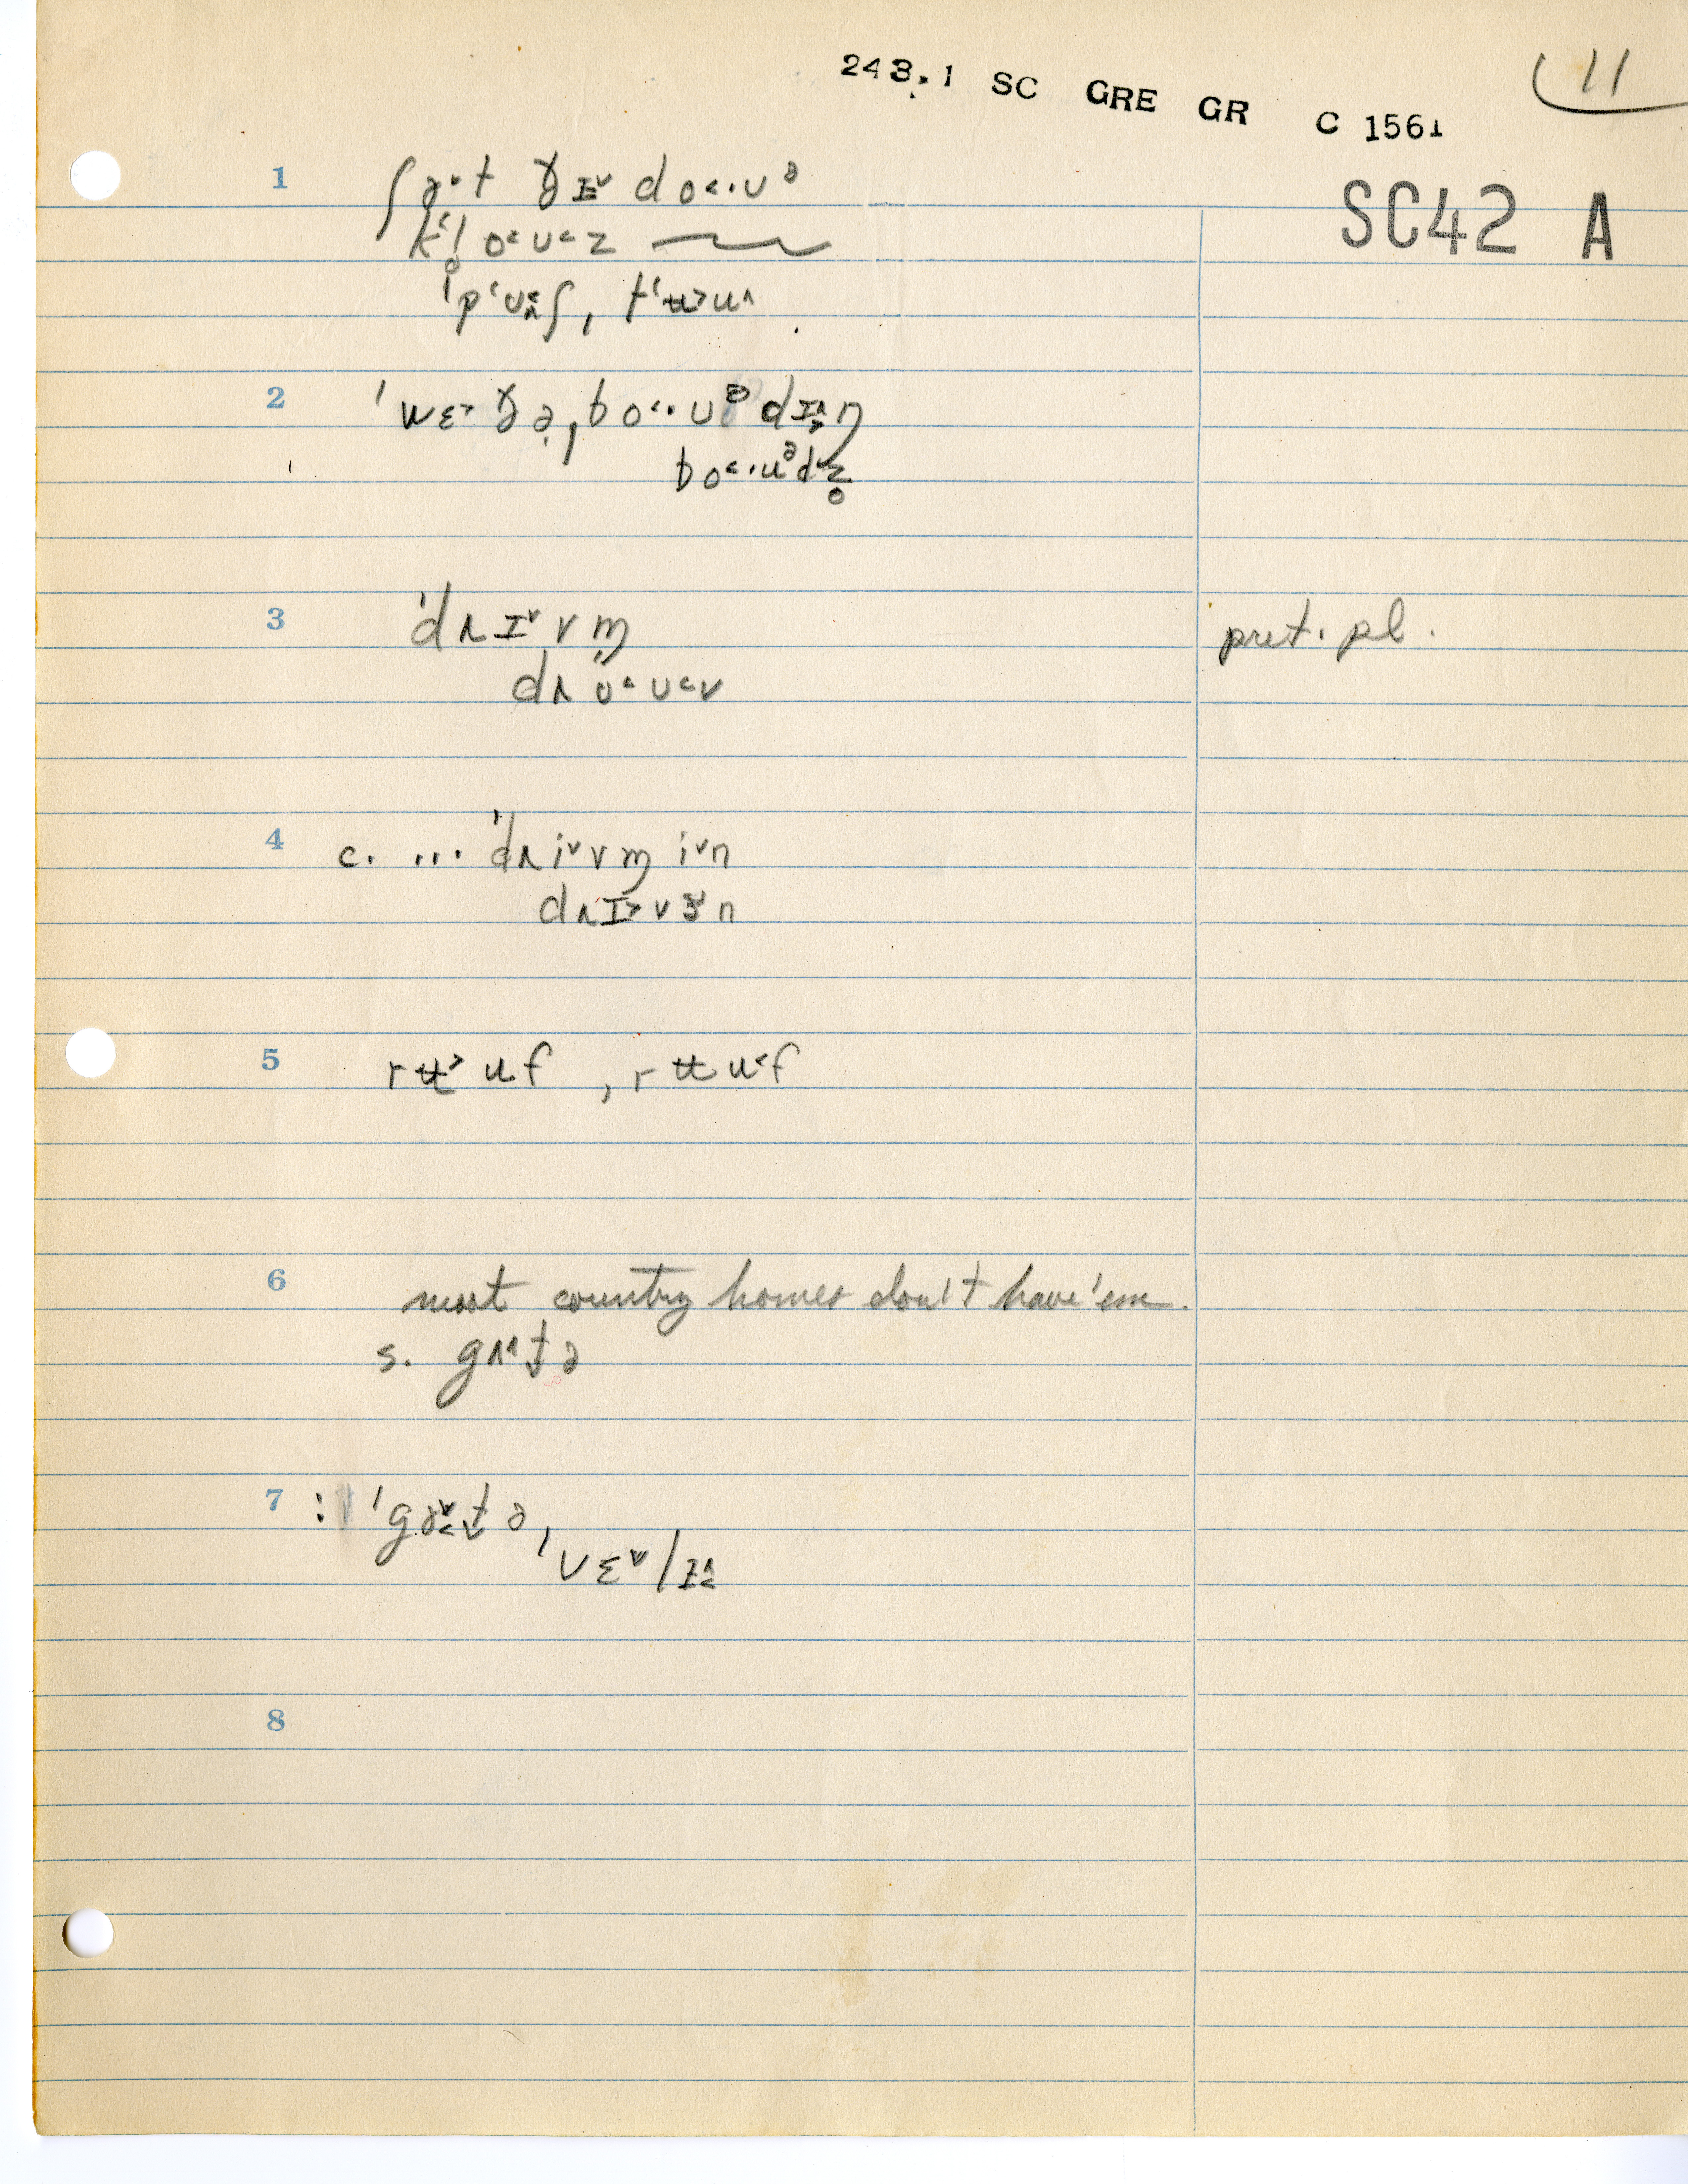 243.1 SC GRE GR C 1561
11
SC42 A
1 ʃɜ·t ðɪ˅ do˂·ʊᵊ
k‘l̥o˂ʊ˂z
ˈp‘ʊ˂ʌʃ, t‘ʉ˃u˄
2 ˈwɛ˃ðə̣ˌbo˂·ʊᵊdɪ˄˃ŋ
bo˂·uᵊdz̥
3 ˈdɹɪ˅vm̩ pret. pl.
dɹo˂ʊ˂v
4 c. ... ˈdɹi˅vm̩ i˅n
dɹɪ˃vɜn
5 rʉ˃uf , rʉu˂f
6 most country homes don't have 'em.
s. gʌ˄t̬ə
7 : ˈgɜ˅˂t̬əˌ
vɛ˅lɪ˄˂
8